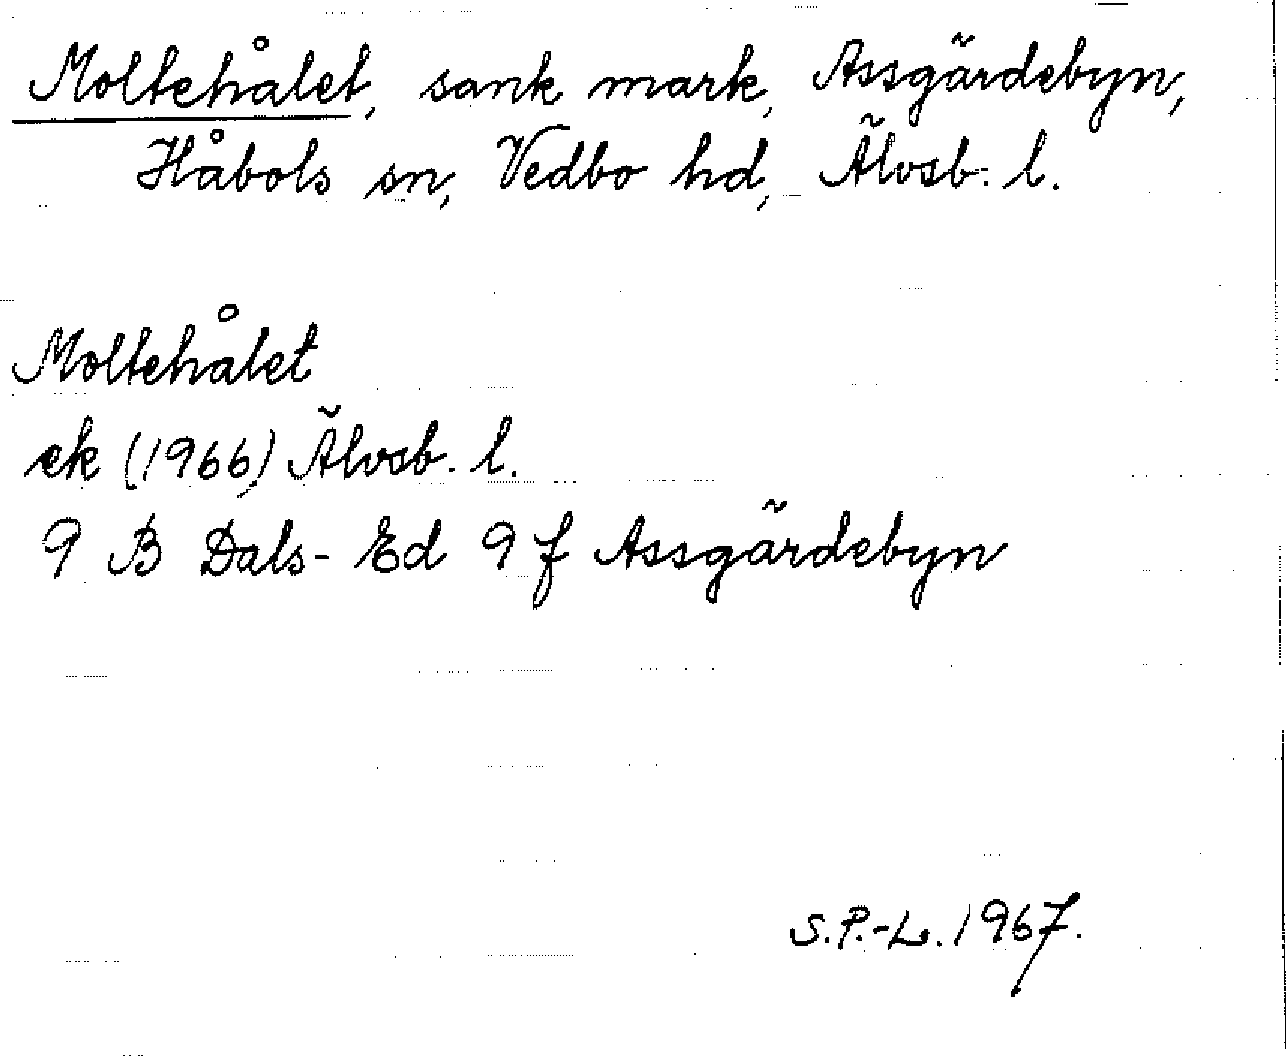 Moltehålet, sank mark, Assgärdebyn,
Håbols sn, Vedbo hd, Älvsb. l.
Moltehålet
ek (1966) Älvsb. l.
9 B Dals-Ed 9 f Assgärdebyn
S.P.-L. 1967.